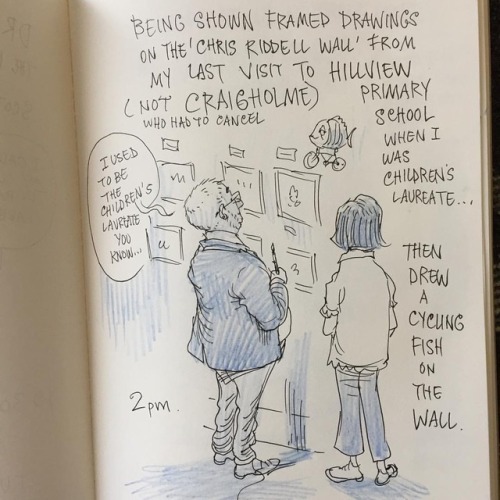 BEING SHOWN FRAMED DRAWINGS
ON THE 'CHRIS RIDDELL WALL' FROM
MY LAST VISIT TO HILLVIEW
(NOT CRAIGHOLME)
WHO HAD TO CANCEL
PRIMARY
SCHOOL
WHEN I
WAS
CHILDREN'S
LAUREATE...
I USED
TO BE
THE
CHILDREN'S
LAUREATE
YOU
KNOW...
THEN
DREW
A
CYCLING
FISH
ON
THE
WALL.
2pm.